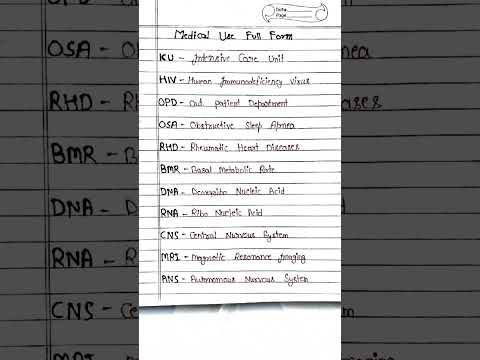 Date:
Page
Medical Use Full Form
ICU - Intensive Care Unit
HIV - Human Immunodeficiency virus
OPD - Out patient Department
OSA - Obstructive Sleep Apnea
RHD - Rheumatic Heart Diseases
BMR - Basal Metabolic Rate
DNA - Deoxyribo Nucleic Acid
RNA - Ribo Nucleic Acid
CNS - Central Nurvous System
MRI - Magnetic Resonance Imaging
ANS - Autonomous Nurvous System